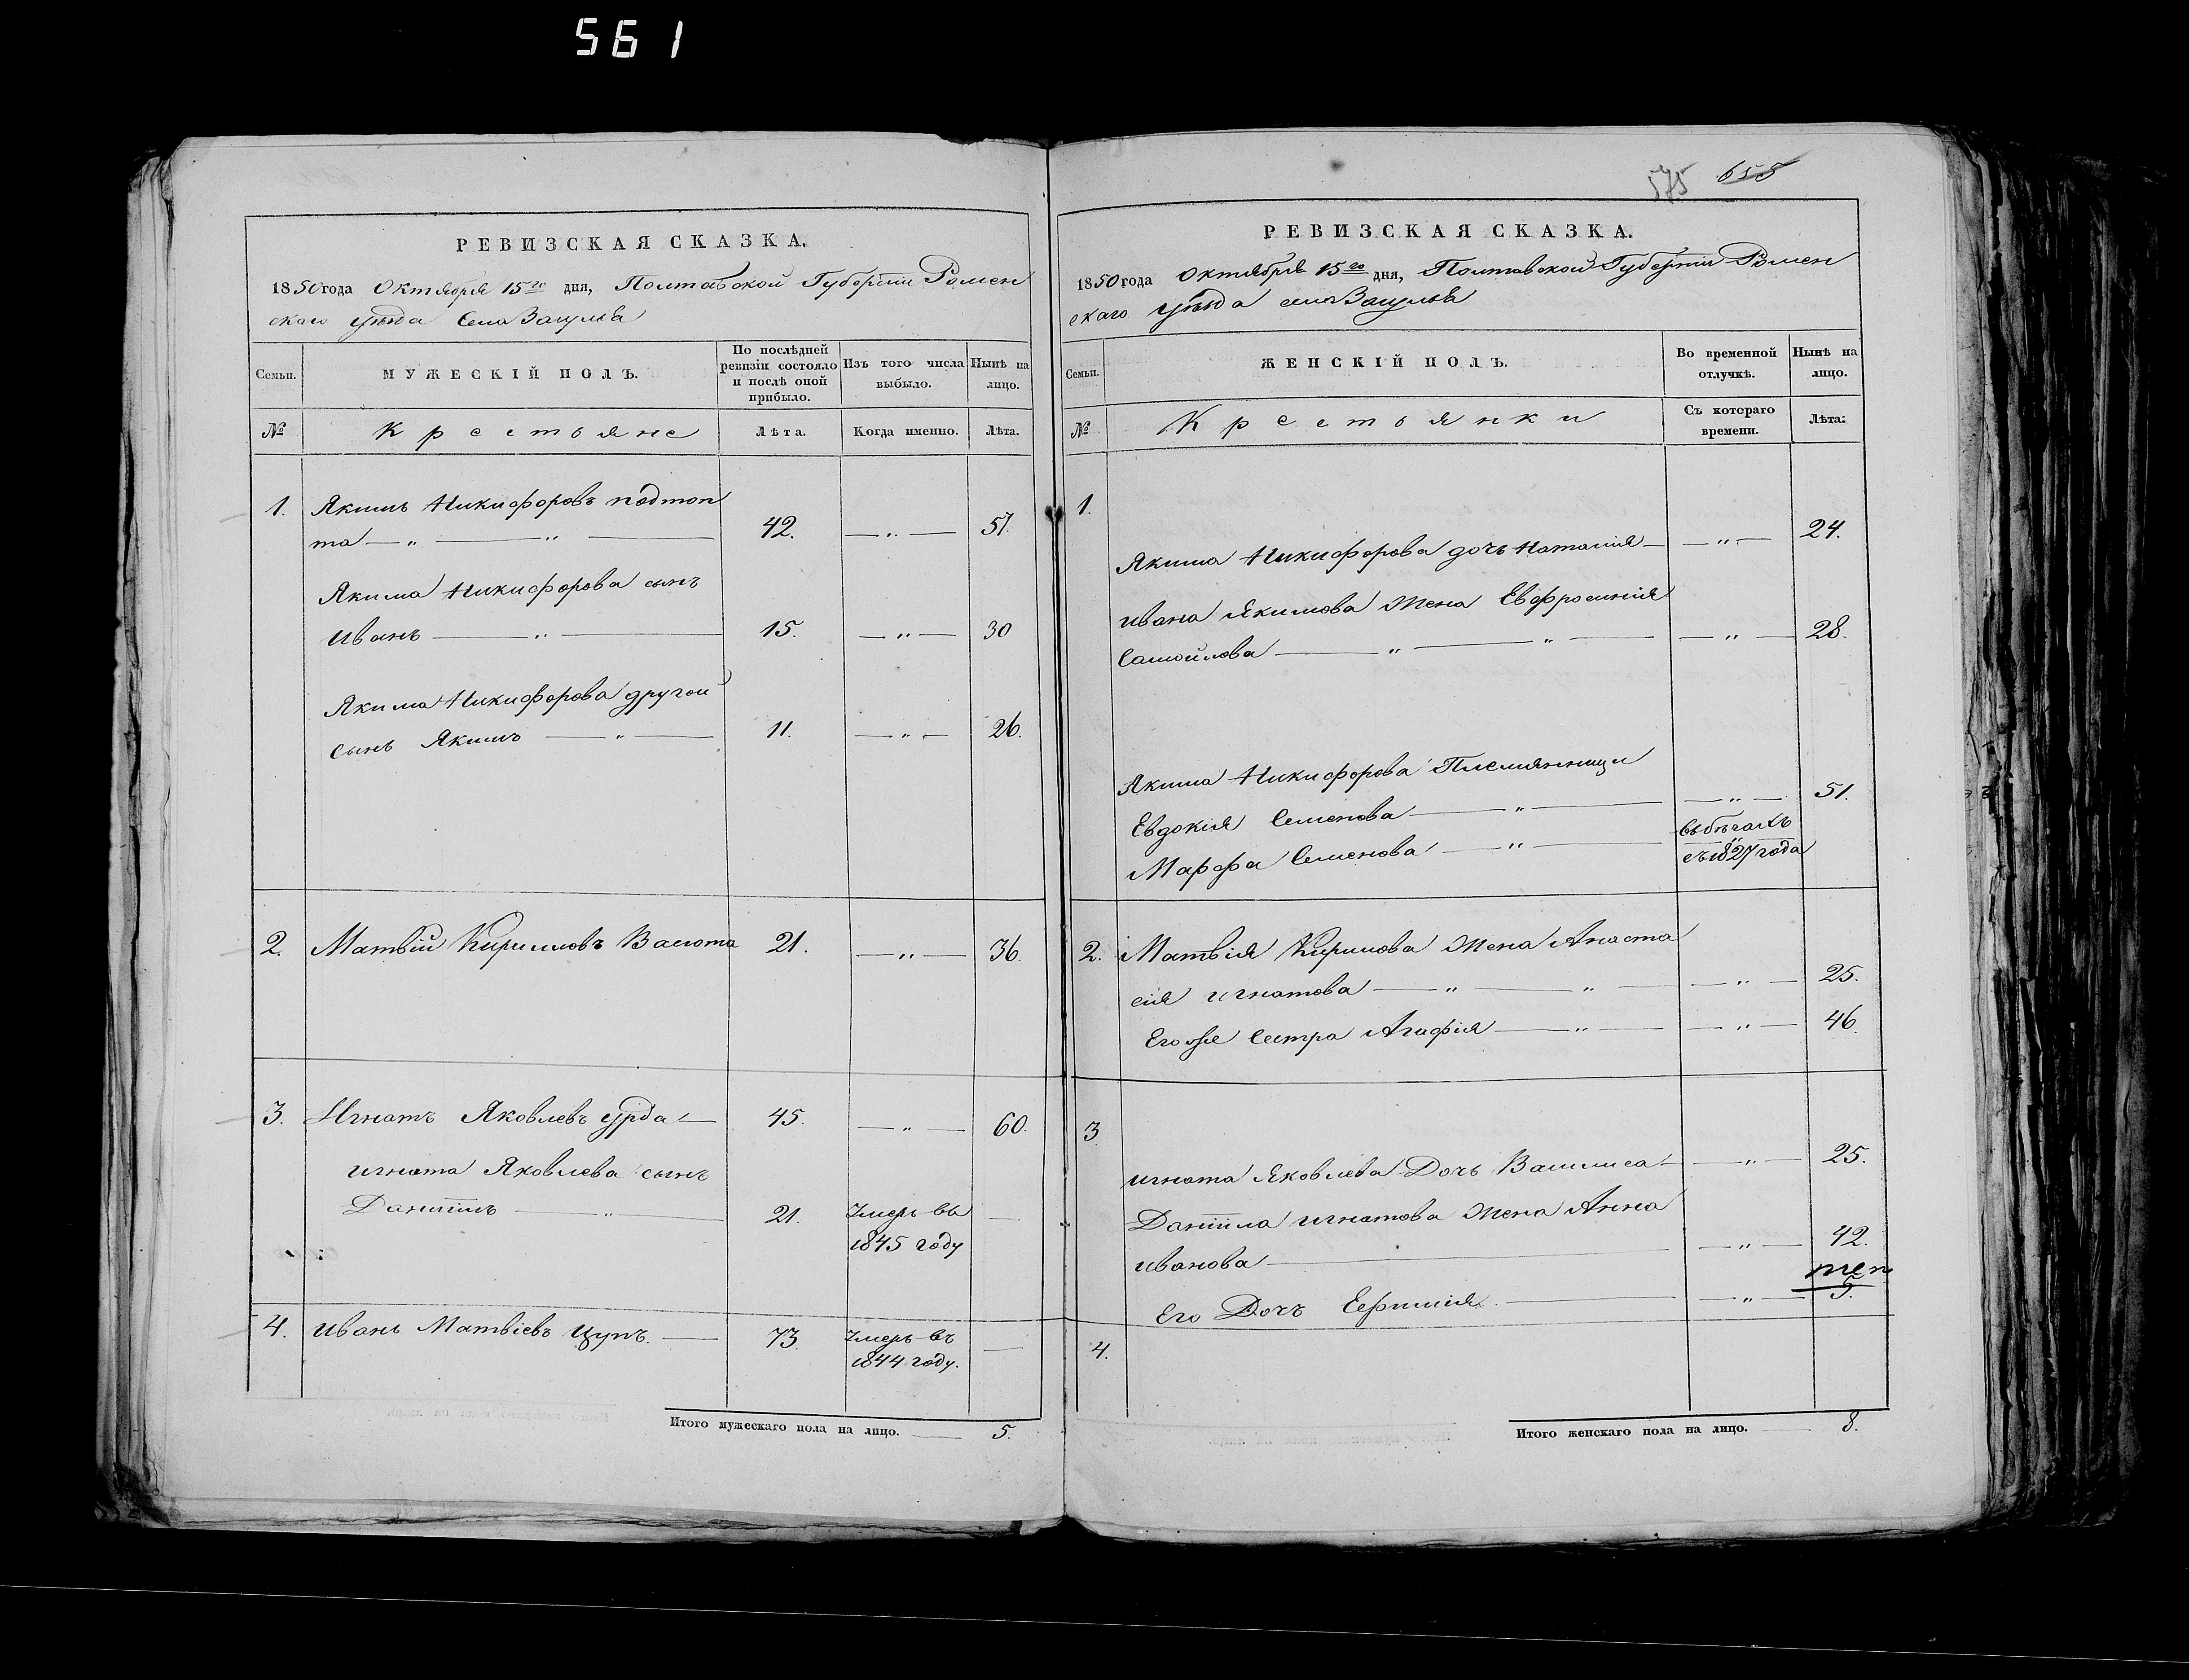 561
575 655
РЕВИЗСКАЯ СКАЗКА.
1850 года Октября 15го дня, Полтавской Губерніи Ромен
скаго уѣзда Села Засулья
Семьи.
МУЖЕСКІЙ ПОЛЪ.
По послѣдней ревизіи состояло и послѣ оной прибыло.
Изъ того числа выбыло.
Нынѣ на лицо.
№
Крестьяне
Лѣта.
Когда именно.
Лѣта.
1. Якимъ Никифоровъ подтоп
та — " — " — 42. — " — 57.
Якима Никифорова сынъ
Иванъ — " — 15. — " — 30
Якима Никифорова другой
сынъ Якимъ — " — 11. — " — 26.
2. Матвій Кирилловъ 21. — " — 36.
3. Игнатъ Яковлевъ Урда — 45. — " — 60.
Игната Яковлева сынъ
Даніилъ — " — 21. Умеръ въ —
1845 году
4. Иванъ Матвіевъ Цупъ. — 73. Умеръ въ —
1844 году.
Итого мужескаго пола на лицо. — 5.
РЕВИЗСКАЯ СКАЗКА.
1850 года Октября 15го дня, Полтавской Губерніи Ромен
скаго уѣзда села Засулья
Семьи.
ЖЕНСКІЙ ПОЛЪ.
Во временной отлучкѣ.
Нынѣ на лицо.
№
Крестьянки
Съ котораго времени.
Лѣта.
1.
Якима Никифорова дочь Наталія — — " — 24.
Ивана Якимова жена Евфросинія
Самойлова — " — " — — " — 28.
Якима Никифорова Племянницы
Евдокія Семенова — " — — " — 51.
Марфа Семенова — " — въ бѣгахъ
съ 1827 года
2. Матвія Кирилова жена Анаста
сія Игнатова — " — " — — " — 25.
Его же сестра Агафія — " — — " — 46.
3
Игната Яковлева Дочь Василиса — — " — 25.
Даніила Игнатова жена Анна
Иванова — — " — 42.
Его Дочь — — " — 5.
4.
Итого женскаго пола на лицо. — 8.